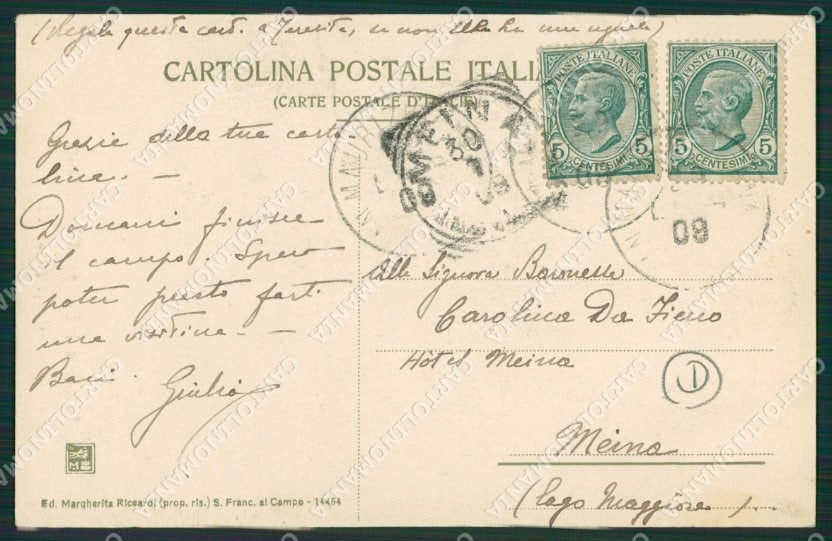 (Regala questa cart. a Teresita, se non ella ha una uguale)
CARTOLINA POSTALE ITALIA
(CARTE POSTALE D'ITALIE)
POSTE ITALIANE
5 CENTESIMI 5
POSTE ITALIANE
5 CENTESIMI 5
MEINA
30
09
09
Grazie della tua carto-
lina. -
Domani finisce
il campo. Spero
poter presto farti
una visitina. -
Baci.
Giulio
Alla Signora Baronessa
Carolina Da Fieno
Hôtel Meina
Meina
(Lago Maggiore)
Ed. Margherita Riccardi (prop. ris.) S. Franc. al Campo - 14464
CARTOLINOMANIA